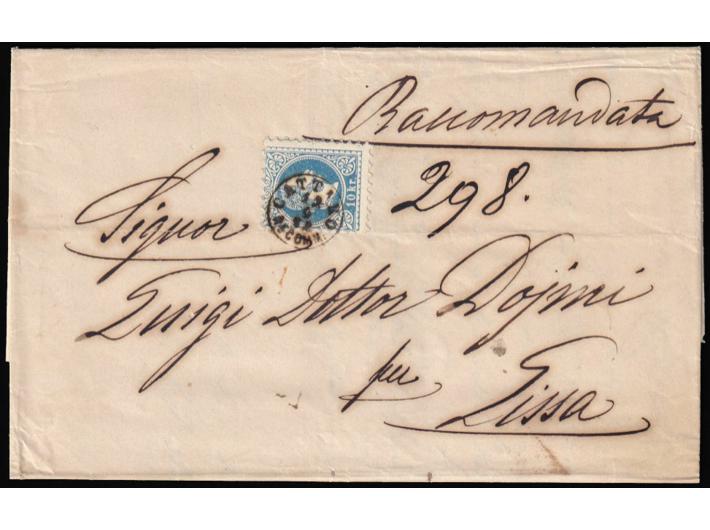 Raccomandata
298.
10 kr.
CATTARO
RECOMM
Signor
Luigi Dottor Dojmi
per
Lissa